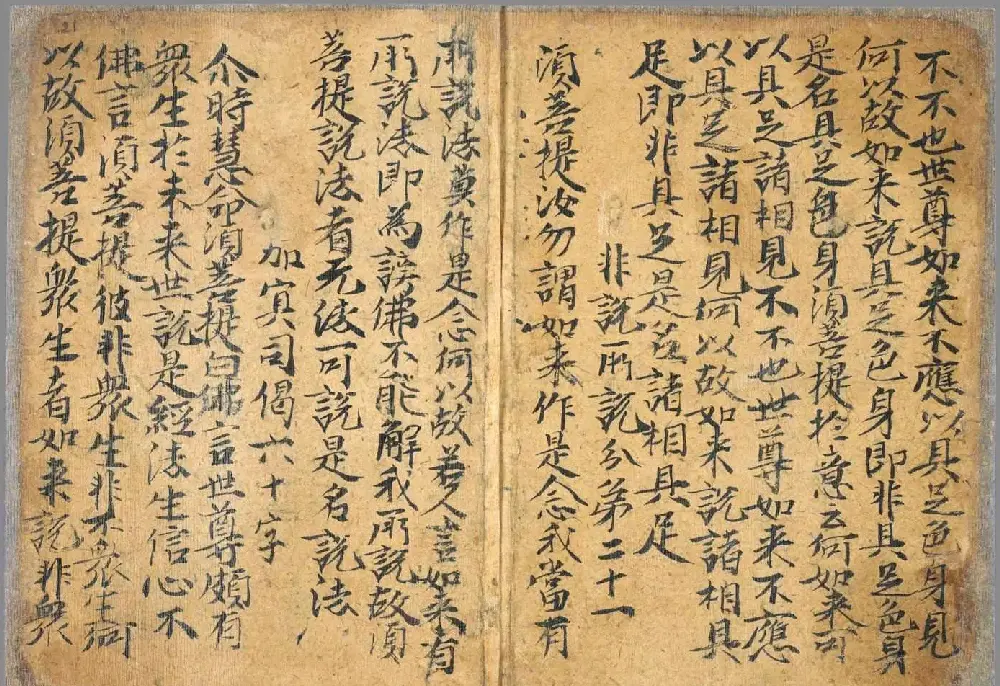 不不也世尊如来不應以具足色身見
何以故如来說具足色身即非具足色身
是名具足色身須菩提於意云何如来可
以具足諸相見不不也世尊如来不應
以具足諸相見何以故如来說諸相具
足即非具足是名諸相具足
非說所說分第二十一
須菩提汝勿謂如来作是念我當有
所說法莫作是念何以故若人言如来有
所說法即為謗佛不能解我所說故須
菩提說法者无法可說是名說法
加冥司偈六十字
尒時慧命須菩提白佛言世尊頗有
衆生於未来世說是經法生信心不
佛言須菩提彼非衆生非不衆生何
以故須菩提衆生者如来說非衆